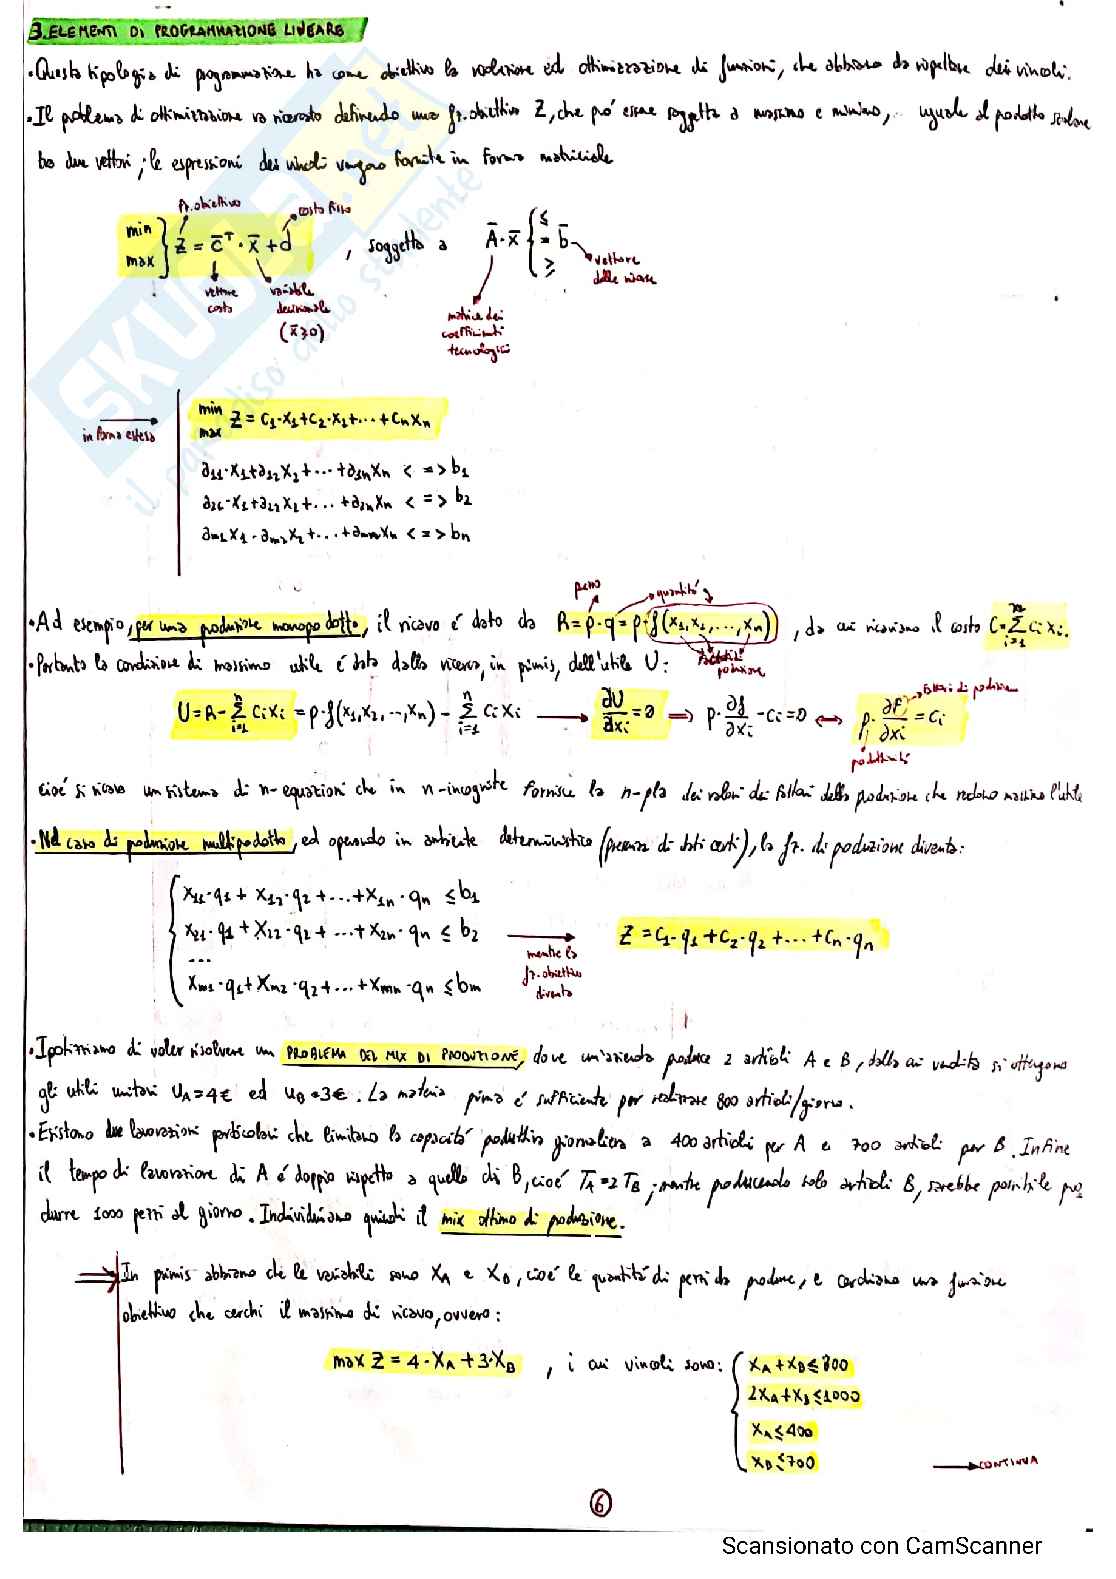 3. ELEMENTI DI PROGRAMMAZIONE LINEARE
• Questa tipologia di programmazione ha come obiettivo la risoluzione ed ottimizzazione di funzioni, che abbiano da rispettare dei vincoli.
• Il problema di ottimizzazione va ricercato definendo una fz. obiettivo Z, che può essere soggetta a massimo e minimo, uguale al prodotto scalare
tra due vettori; le espressioni dei vincoli vengono fornite in forma matriciale
fz. obiettivo
costo fisso
min max } Z = c̄ᵀ · x̄ + d , soggetta a Ā · x̄ { ≤ = ≥ b̄
vettore costo
variabile decisionale (x̄≥0)
matrice dei coefficienti tecnologici
vettore delle risorse
in forma estesa
min max Z = C1·X1+C2·X2+...+CnXn
a11·X1+a12X2+...+a1nXn < = > b1
a21·X1+a22X2+...+a2nXn < = > b2
am1X1·am2X2+...+amnXn < = > bn
prezzo
quantità
• Ad esempio, per una produzione monoprodotto, il ricavo é dato da R=p·q=p·f(x1,x2,...,xn) , da cui ricaviamo il costo C=∑ⁿᵢ₌₁ ci xi.
fattori di produzione
• Pertanto la condizione di massimo utile é data dalla ricerca, in primis, dell'utile U:
U=R-∑ⁿᵢ₌₁ CiXi = p·f(x1,x2,..,xn) - ∑ⁿᵢ₌₁ CiXi → ∂U/∂xi=0 ⇒ p·∂f/∂xi -ci=0 ⇔ p·∂f/∂xi = ci
fattori di produzione
produttività
cioé si ricava un sistema di n-equazioni che in n-incognite fornisce la n-pla dei valori dei fattori della produzione che rendono massimo l'utile
• Nel caso di produzione multiprodotto, ed operando in ambiente deterministico (presenza di dati certi), la fz. di produzione diventa:
X11·q1 + X12·q2 +...+X1n·qn ≤ b1
X21·q1 + X22·q2 + ...+ X2n·qn ≤ b2
...
Xm1·q1+Xm2·q2+...+Xmn·qn ≤ bm
mentre la fz. obiettivo diventa
Z = C1·q1+C2·q2+...+Cn·qn
• Ipotizziamo di voler risolvere un PROBLEMA DEL MIX DI PRODUZIONE, dove un'azienda produce 2 articoli A e B, dalla cui vendita si ottengono
gli utili unitari UA=4€ ed UB=3€. La materia prima é sufficiente per realizzare 800 articoli/giorno.
• Esistono due lavorazioni particolari che limitano la capacità produttiva giornaliera a 400 articoli per A e 700 articoli per B. Infine
il tempo di lavorazione di A é doppio rispetto a quello di B, cioé TA=2TB; mentre producendo solo articoli B, sarebbe possibile pro
durre 1000 pezzi al giorno. Individuiamo quindi il mix ottimo di produzione.
In primis abbiamo che le variabili sono XA e XB, cioé le quantità di pezzi da produrre, e cerchiamo una funzione
obiettivo che cerchi il massimo di ricavo, ovvero:
max Z = 4·XA+3·XB , i cui vincoli sono: { XA+XB≤800
2XA+XB≤1000
XA≤400
XB≤700
CONTINUA
6
Scansionato con CamScanner
SKUOLA.net
il paradiso dello studente